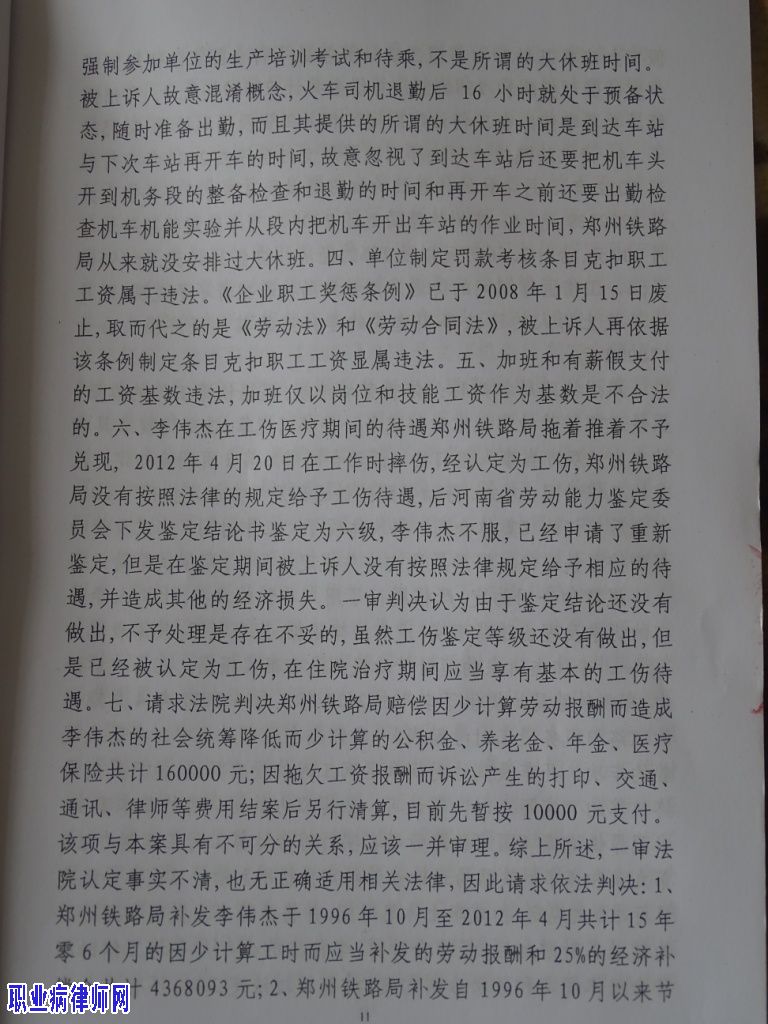 强制参加单位的生产培训考试和待乘,不是所谓的大休班时间。
被上诉人故意混淆概念,火车司机退勤后 16 小时就处于预备状
态,随时准备出勤,而且其提供的所谓的大休班时间是到达车站
与下次车站再开车的时间,故意忽视了到达车站后还要把机车头
开到机务段的整备检查和退勤的时间和再开车之前还要出勤检
查机车机能实验并从段内把机车开出车站的作业时间,郑州铁路
局从来就没安排过大休班。四、单位制定罚款考核条目克扣职工
工资属于违法。《企业职工奖惩条例》已于 2008 年 1 月 15 日废
止,取而代之的是《劳动法》和《劳动合同法》,被上诉人再依据
该条例制定条目克扣职工工资显属违法。五、加班和有薪假支付
的工资基数违法,加班仅以岗位和技能工资作为基数是不合法
的。六、李伟杰在工伤医疗期间的待遇郑州铁路局拖着推着不予
兑现, 2012 年 4 月 20 日在工作时摔伤,经认定为工伤,郑州铁路
局没有按照法律的规定给予工伤待遇,后河南省劳动能力鉴定委
员会下发鉴定结论书鉴定为六级,李伟杰不服,已经申请了重新
鉴定,但是在鉴定期间被上诉人没有按照法律规定给予相应的待
遇,并造成其他的经济损失。一审判决认为由于鉴定结论还没有
做出,不予处理是存在不妥的,虽然工伤鉴定等级还没有做出,但
是已经被认定为工伤,在住院治疗期间应当享有基本的工伤待
遇。七、请求法院判决郑州铁路局赔偿因少计算劳动报酬而造成
李伟杰的社会统筹降低而少计算的公积金、养老金、年金、医疗
保险共计 160000 元;因拖欠工资报酬而诉讼产生的打印、交通、
通讯、律师等费用结案后另行清算,目前先暂按 10000 元支付。
该项与本案具有不可分的关系,应该一并审理。综上所述,一审法
院认定事实不清,也无正确适用相关法律,因此请求依法判决:1、
郑州铁路局补发李伟杰于 1996 年 10 月至 2012 年 4 月共计 15 年
零 6 个月的因少计算工时而应当补发的劳动报酬和 25%的经济补
计 4368093 元;2、郑州铁路局补发自 1996 年 10 月以来节
11
职业病律师网